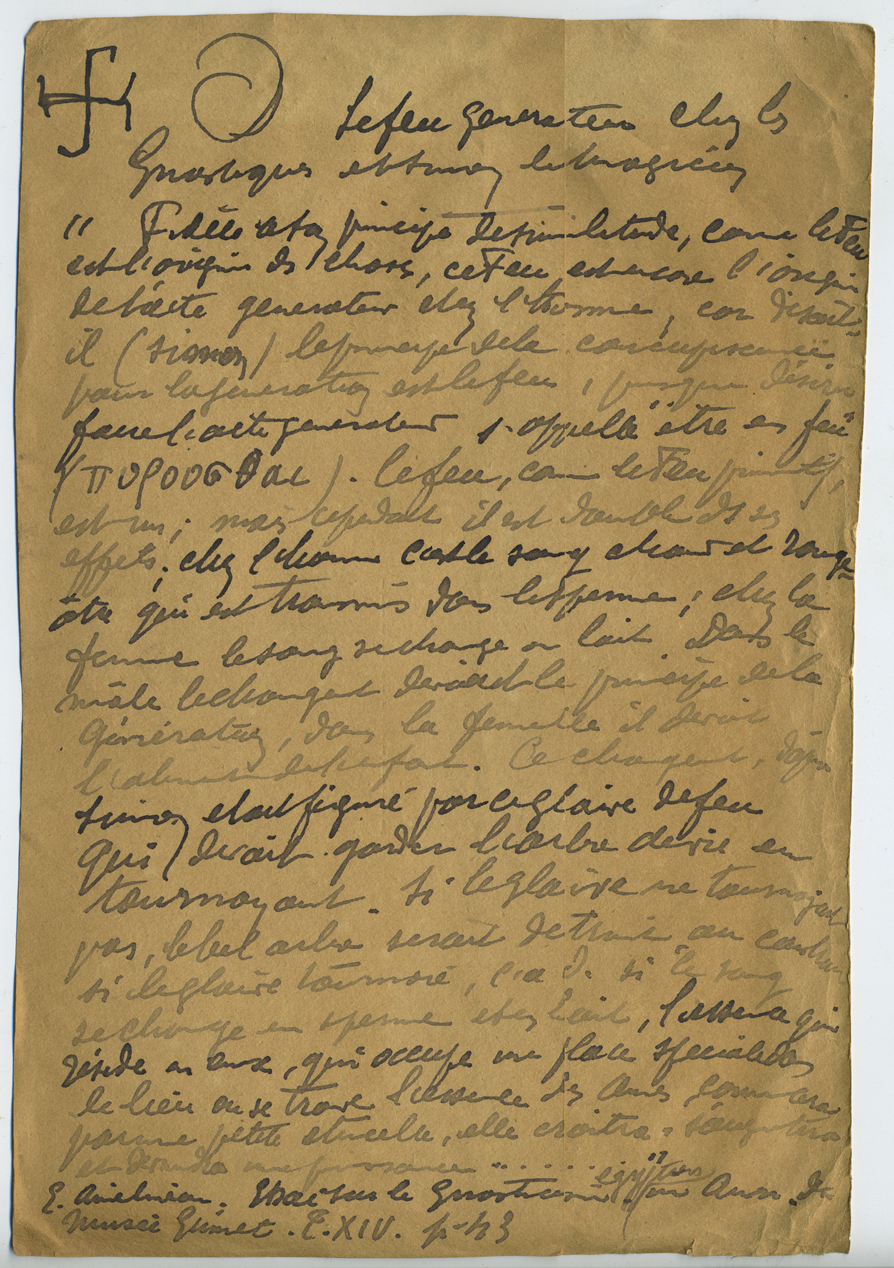 Le feu generateur chez les
Gnostiques et Simon le magicien
" Fidèle à son principe de similitude, comme le Feu
est l'origine des choses, ce Feu est encore l'origin
de l'acte generateur chez l'homme, car disait-
il (Simon) le principe de la concupiscence
pour la generation est le feu, puisque désirer
faire l'acte generateur s'appelle "être en feu"
(πυροῦσθαι). Le feu, comme le Feu primitif,
est un; mais cependant il est double ds ses
effets; chez l'homme c'est le sang chaud et rouge-
âtre qui est transmis dans le sperme; chez la
femme le sang se change en lait. Dans le
mâle le changent devient le principe de la
Génération, dans la femelle il devient
l'aliment de l'enfant. Ce changent, d'après
Simon etait figuré par ce glaive de feu
qui devait garder l'arbre de vie en
tournoyant. Si le glaive ne tournoyait
pas, le bel arbre serait detruit au contraire
si le glaive tournoie, c.a.d. si le sang
se change en sperme et en lait, l'essence qui
réside en eux, qui occupe une place speciale dans
le lieu ou se trouve l'essence des ames commencera
par une petite etincelle, elle croitra s'augmentera
et deviendra une puissance ......"
E. Amelineau. Essai sur le Gnosticisme égyptien Ann. du
Musée Guimet. T. XIV. p. 43